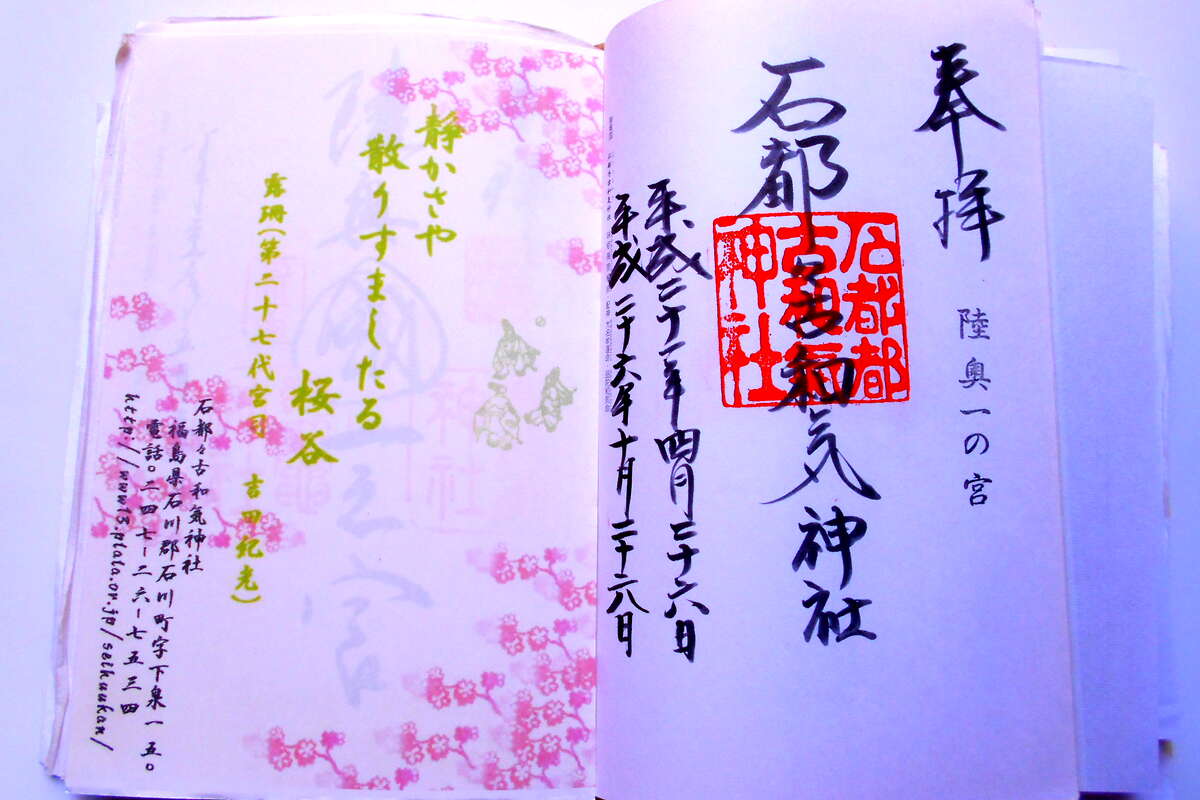 奉拝
陸奥一の宮
石都々古和気神社
石都都
古和氣
神社
平成二十一年四月二十六日
平成二十六年十月二十八日
静かさや
散りすましたる
桜谷
露珊(第二十七代宮司 吉田紀光)
石都々古和気神社
福島県石川郡石川町字下泉一五〇
電話〇二四七ー二六ー七五三四
http://www13.plala.or.jp/seikuukan/